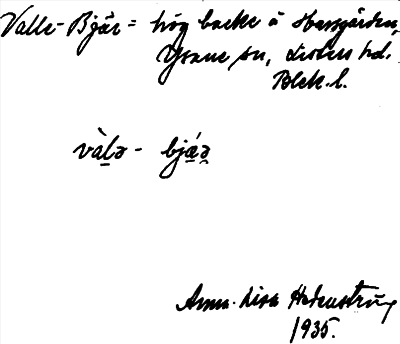 Valle-Bjär = hög backe å Herrgården,
Ysane sn, Listers hd.
Blek. l.
vàḷə - bjǽ̣ə̯
Anna-Lisa Hedenström
1935.